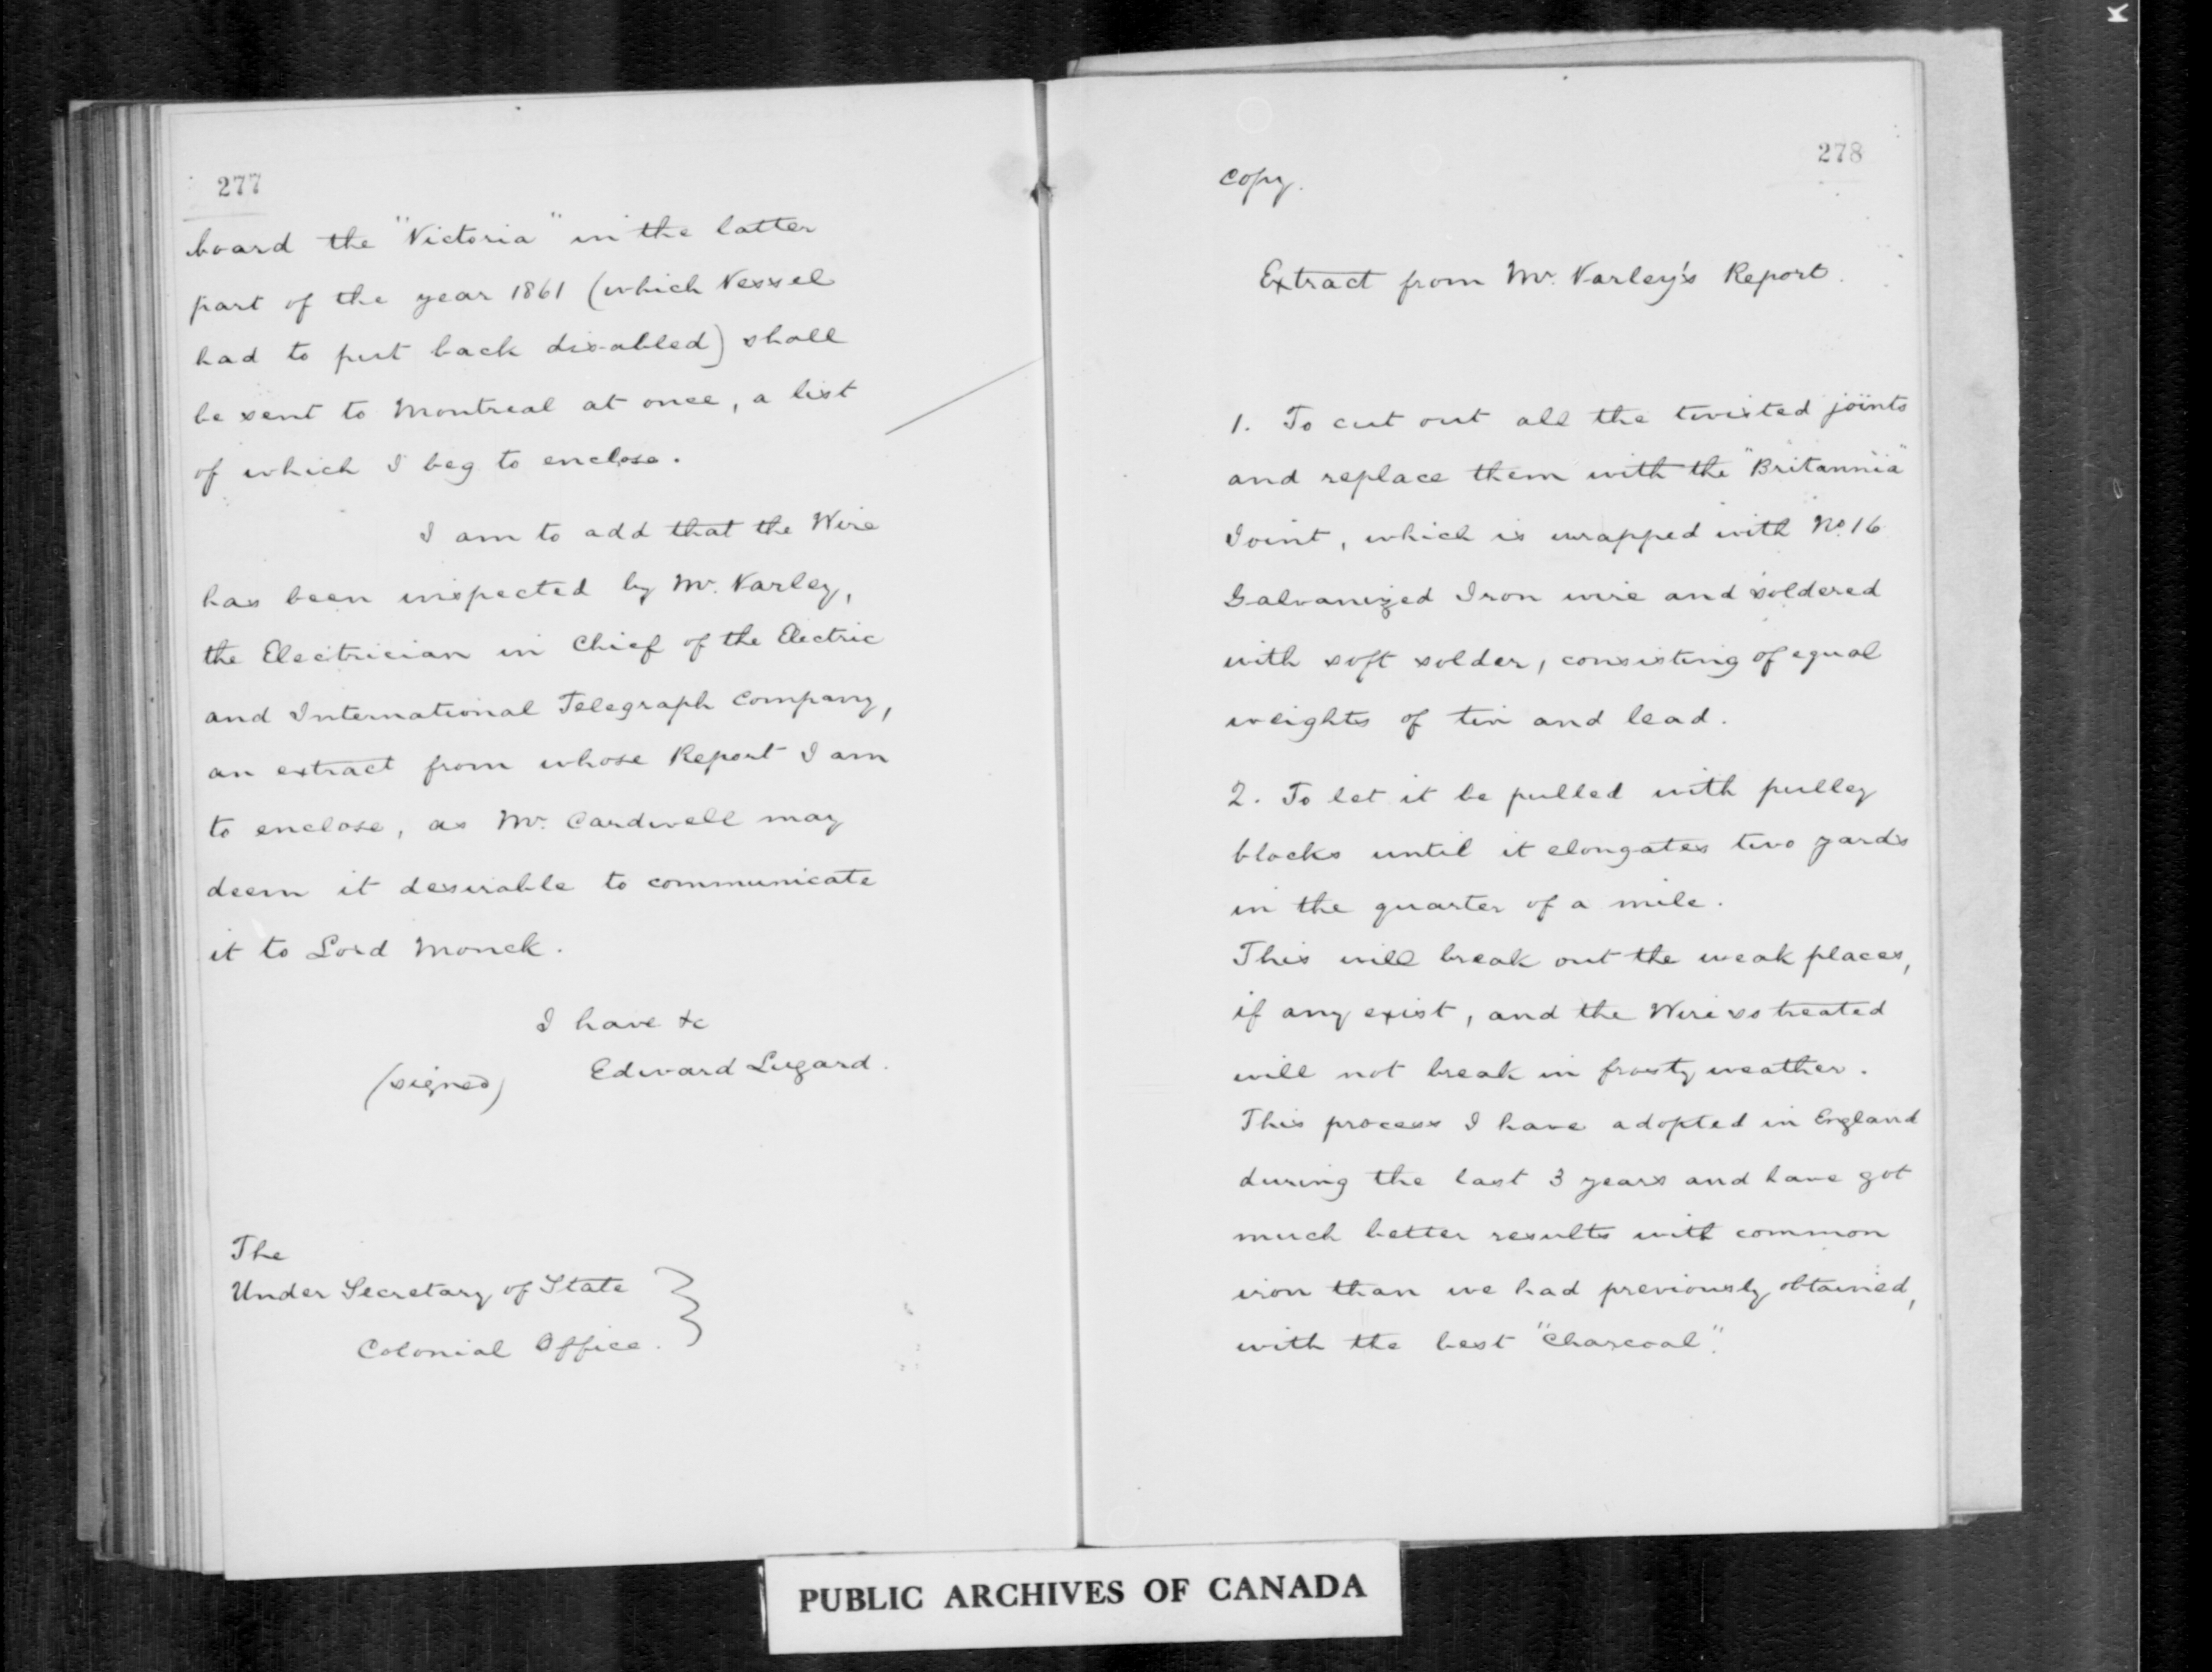 277
board the "Victoria" in the latter
part of the year 1861 (which Vessel
had to put back disabled) shall
be sent to Montreal at once, a list
of which I beg to enclose.
I am to add that the Wire
has been inspected by Mr. Varley,
the Electrician in Chief of the Electric
and International Telegraph Company,
an extract from whose Report I am
to enclose, as Mr. Cardwell may
deem it desirable to communicate
it to Lord Monck.
I have &c
(signed) Edward Lugard.
The
Under Secretary of State
Colonial Office.
278
Copy.
Extract from Mr. Varley's Report.
1. To cut out all the twisted joints
and replace them with the "Britannia"
Joint, which is wrapped with No. 16
Galvanized Iron wire and soldered
with soft solder, consisting of equal
weights of tin and lead.
2. To let it be pulled with pulley
blocks until it elongates two yards
in the quarter of a mile.
This will break out the weak places,
if any exist, and the Wire so treated
will not break in frosty weather.
This process I have adopted in England
during the last 3 years and have got
much better results with common
iron than we had previously obtained,
with the best "Charcoal".
PUBLIC ARCHIVES OF CANADA
K